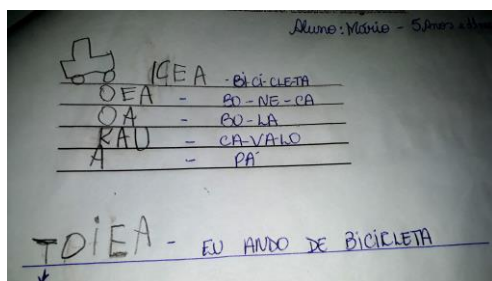 Aluno: Mário - 5 Anos e
IGEA - BICICLETA
OEA - BO-NE-CA
OA - BO-LA
KAU - CA-VA-LO
A - PÁ
TOIEA - EU ANDO DE BICICLETA